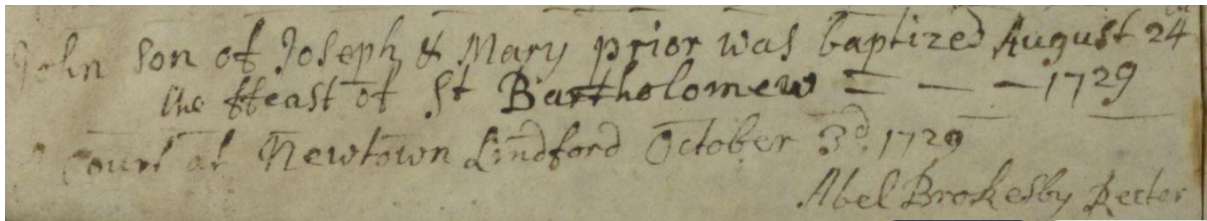 John son of Joseph & Mary prior was baptized August 24th
the ffeast of St Bartholomew = — — 1729
A Court at Newtown Lindford October 3d. 1729
Abel Brokesby Recter